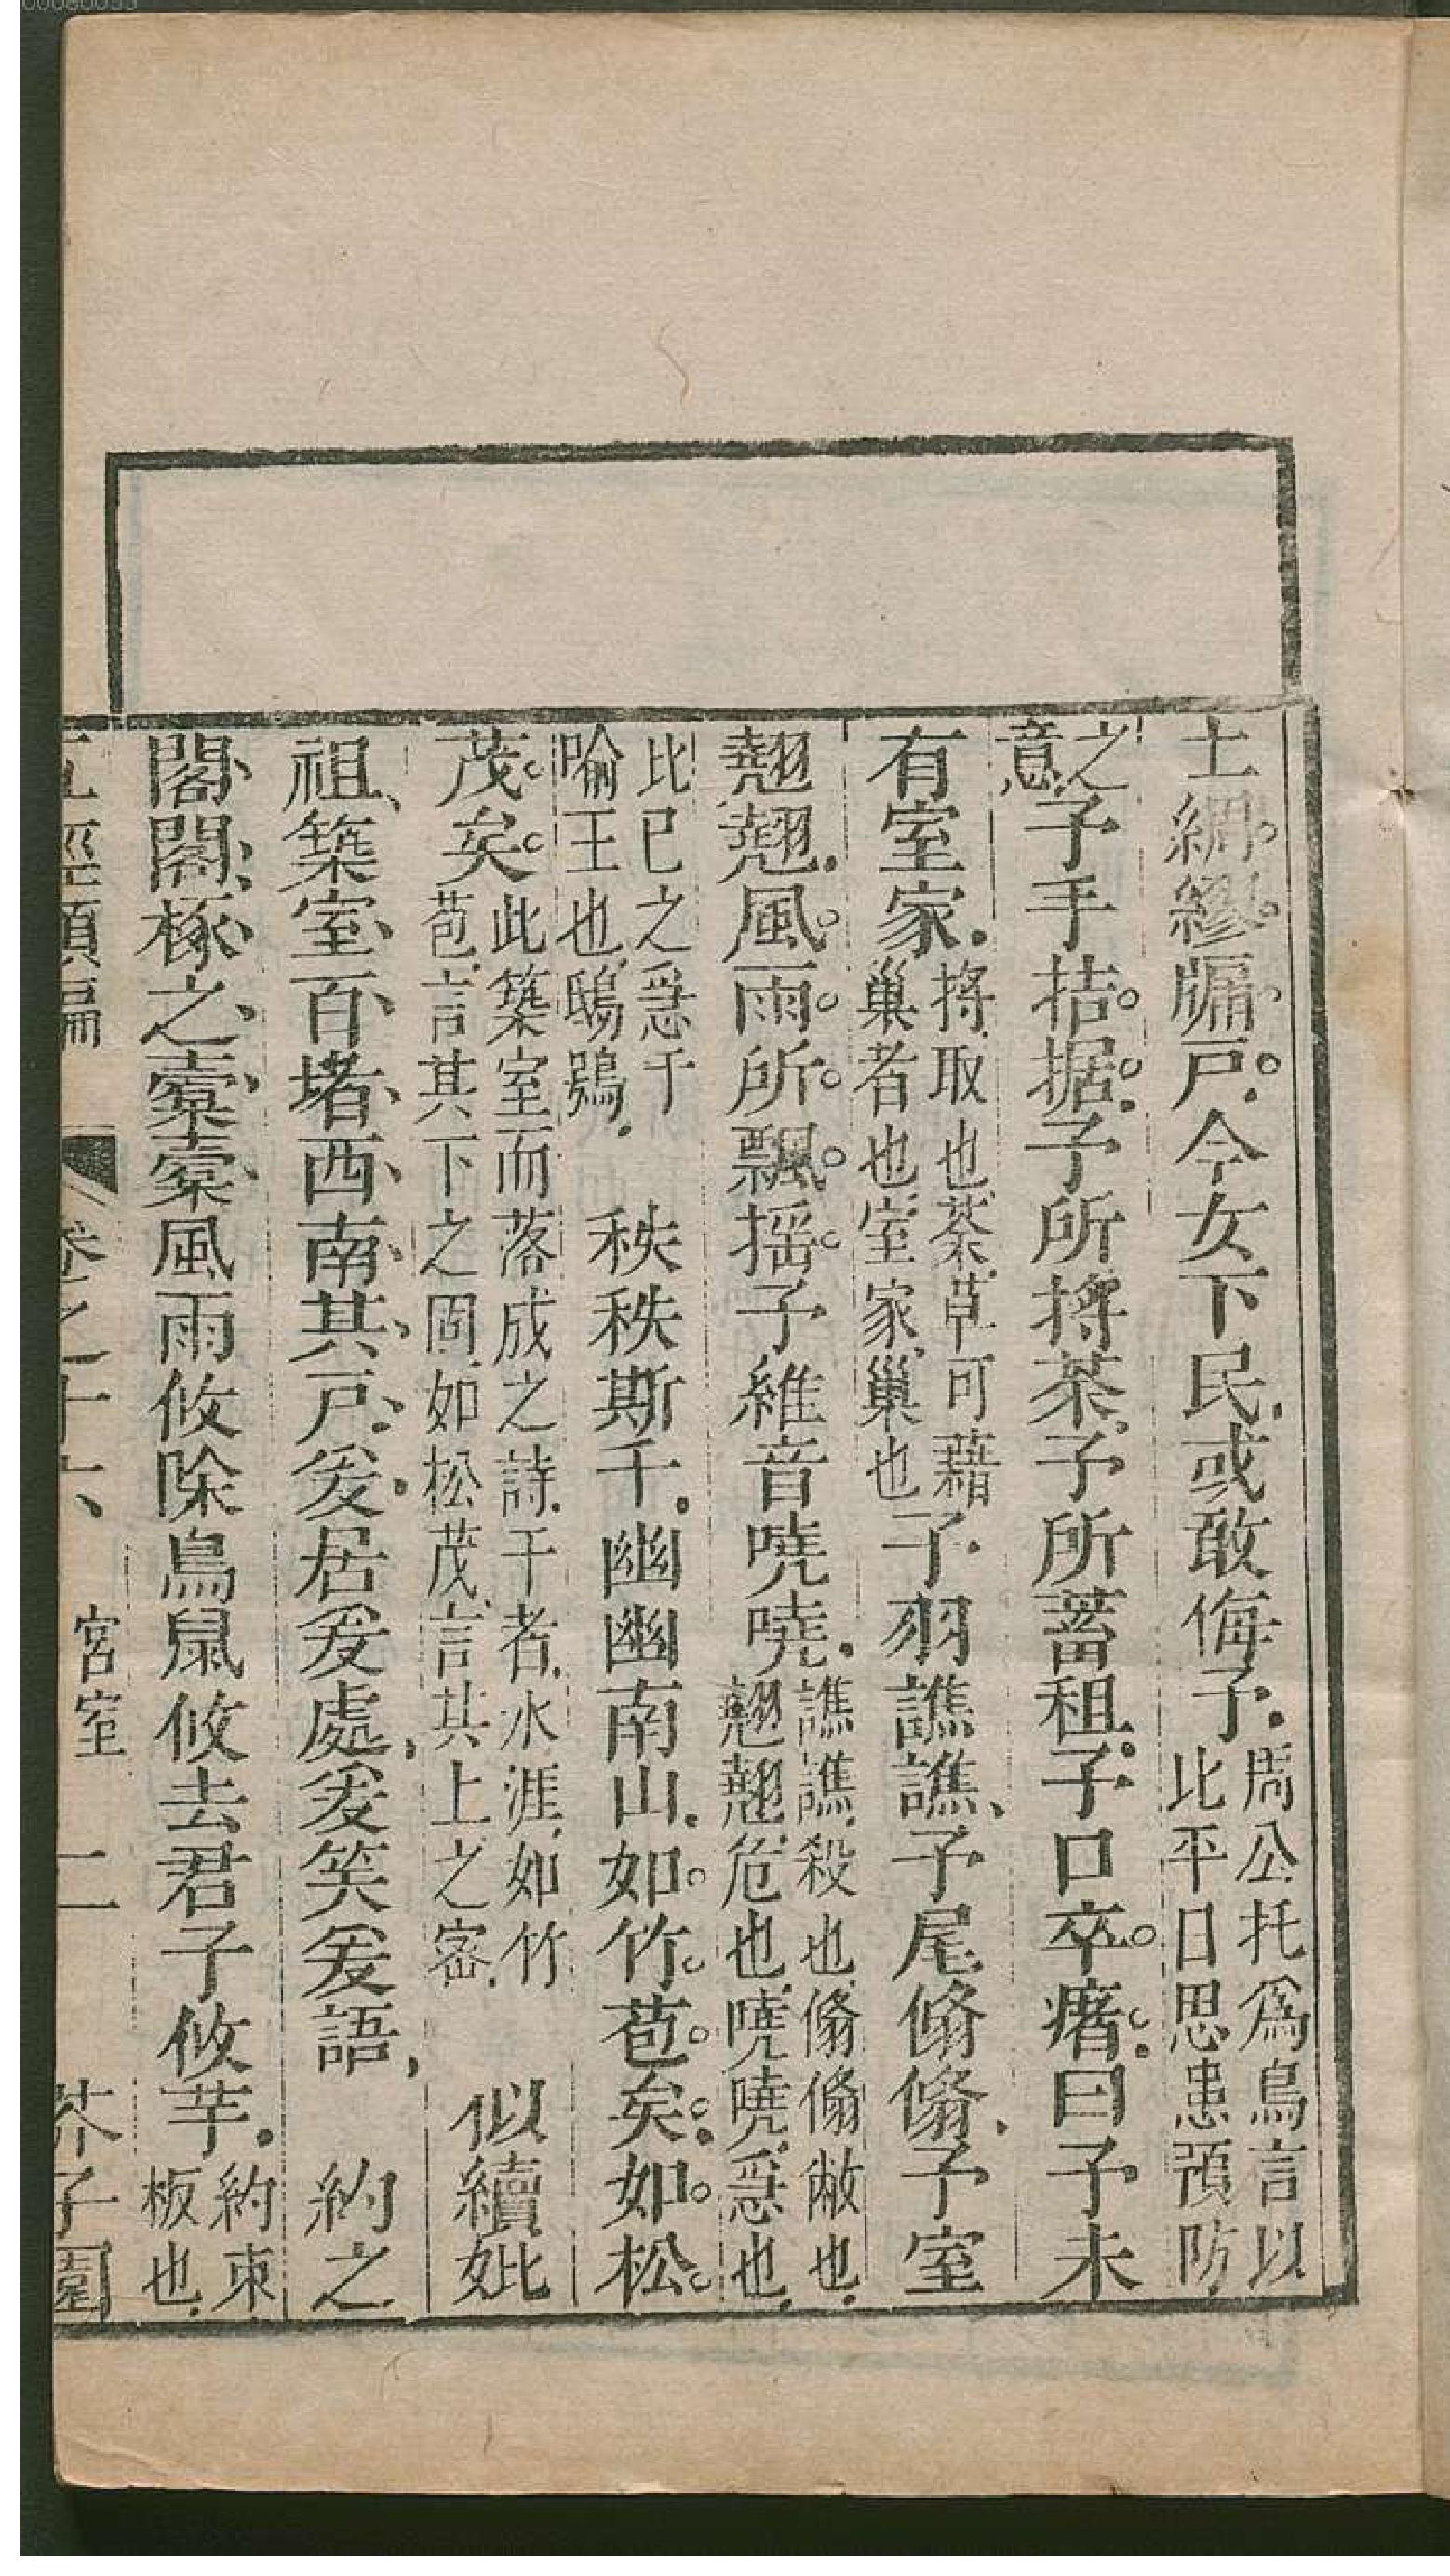 土綢繆牖戸今女下民或敢侮予周公托爲鳥言以比平日思患預防
之意予手拮据予所捋荼予所蓄租予口卒瘏曰予未
有室家捋取也荼草可藉巢者也室家巢也予羽譙譙予尾翛翛予室
翹翹風雨所飄搖予維音嘵嘵譙譙殺也翛翛敝也翹翹危也嘵嘵惡也
比已之惡于喻王也鴟鴞 秩秩斯干幽幽南山如竹苞矣如松
茂矣此築室而落成之詩干者水涯如竹苞言其下之固如松茂言其上之密 似續妣
祖築室百堵西南其戸爰居爰處爰笑爰語 約之
閣閣椓之橐橐風雨攸除鳥鼠攸去君子攸芋約束板也
五經類編 卷之十六 宮室 二 芥子園